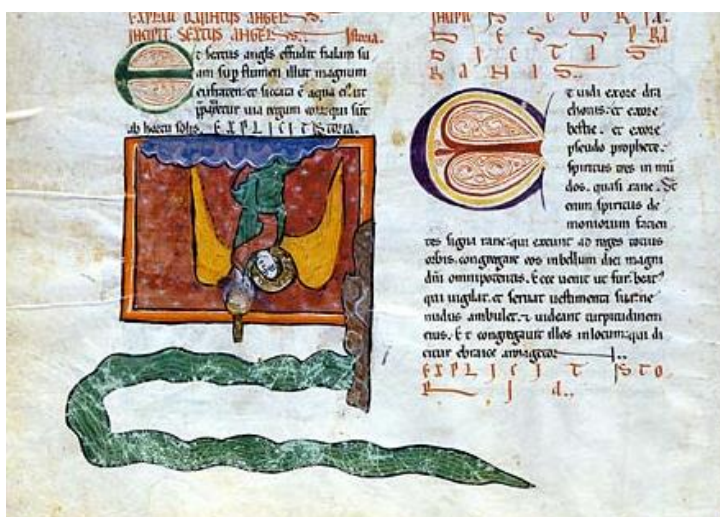 EXPLICIT QVINTVS ANGELVS.
INCIPIT SEXTVS ANGELVS. Istoria.
Et sextus angls effudit fialam su
am sup flumen illut magnum
eufraten: et siccata ē aqua ei. ut
appareretur via regum eorum qui sūt
ab hortu solis. EXPLICIT ISTORIA.
INCIPIT ISTORIA.
DE SPIRA
DICTIS
RANIS
Et uidi exore dra
chonis. et exore
bestie. et exore
pseudo prophete.
spiritus tres in mū
dos. quasi rane. St
enim spiritus de
moniorum facien
tes signa rane: qui exeunt ad reges totius
orbis. congregare eos inbellum diei magni
dni omnipotentis. Ecce uenit ut fur. beat
qui uigilat. et seruat uestimenta sua: ne
nudus ambulet. ⁊ uideant turpitudinem
eius. Et congregauit illos inlocum: qui di
citur ebraice
EXPLICIT ISTO
RIA.